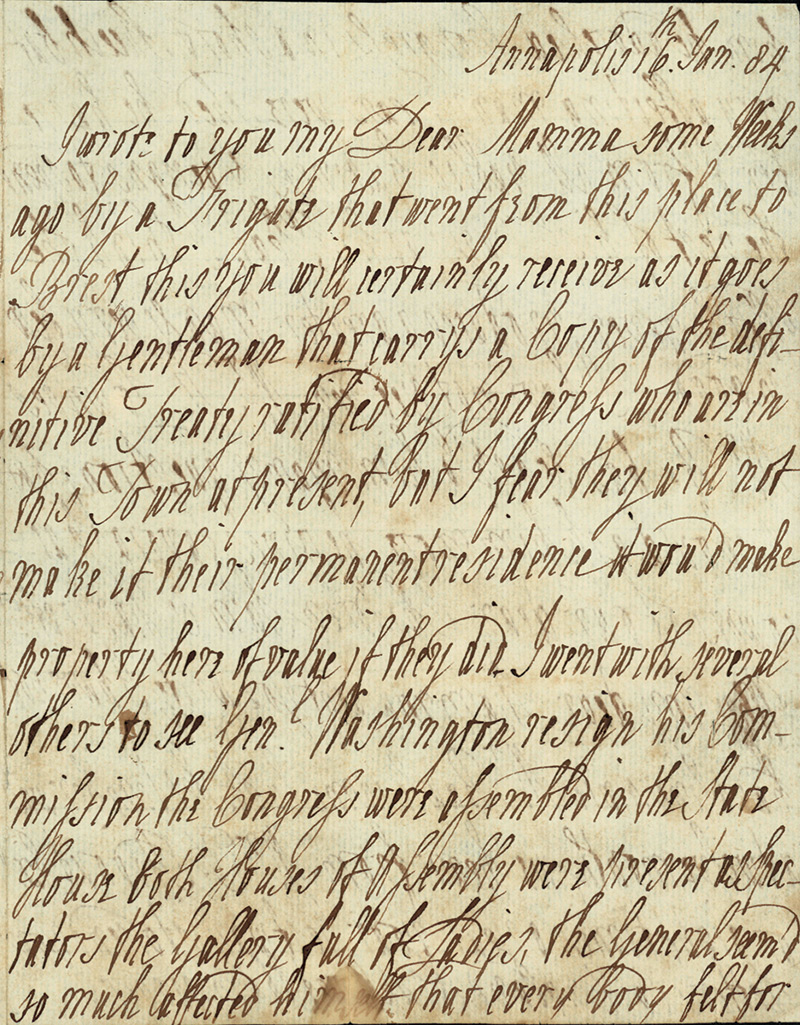 Annapolis 16th. Jan. 84
I wrote to you my Dear Mamma some Weeks
ago by a Frigate that went from this place to
Brest, this you will certainly receive as it goes
by a Gentleman that carrys a Copy of the defi-
nitive Treaty ratified by Congress who are in
this Town at present, but I fear they will not
make it their permanent residence it wou'd make
property here of value if they did. I went with several
others to see Gen. Washington resign his Com-
mission the Congress were assembled in the State
House both Houses of Assembly were present as Spec-
tators the Gallery full of Ladies, the General seem'd
so much affected himself that every body felt for